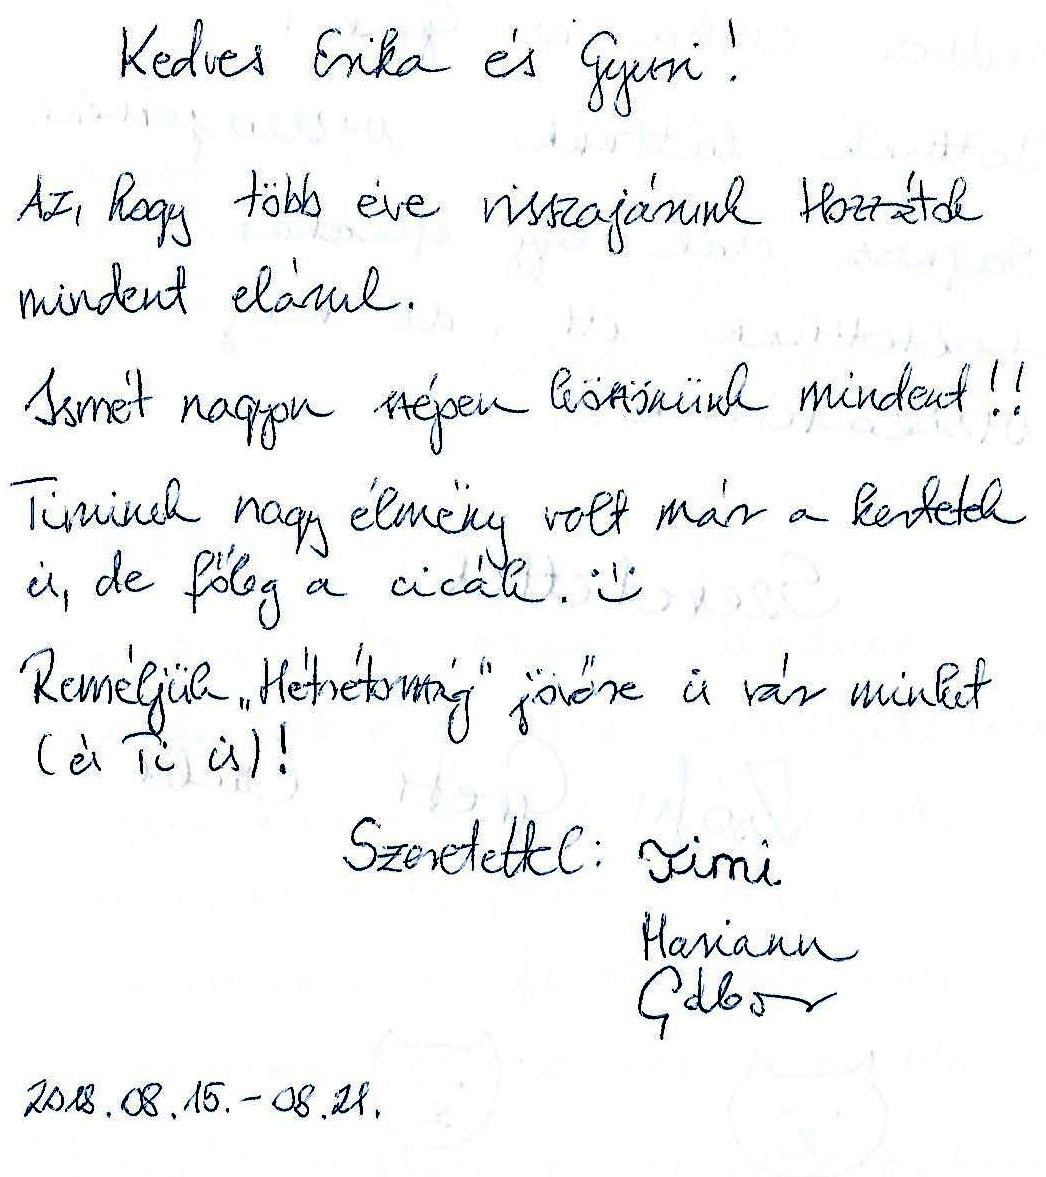 Kedves Erika és Gyuri!
Az, hogy több éve visszajárunk Hozzátok
mindent elárul.
Ismét nagyon szépen köszönünk mindent!!
Timinek nagy élmény volt már a kertetek
is, de főleg a cicák. :)
Reméljük „Hétrétország" jövőre is vár minket
(és Ti is)!
Szeretettel: Timi
Mariann
Gábor
2018.08.15.-08.21.